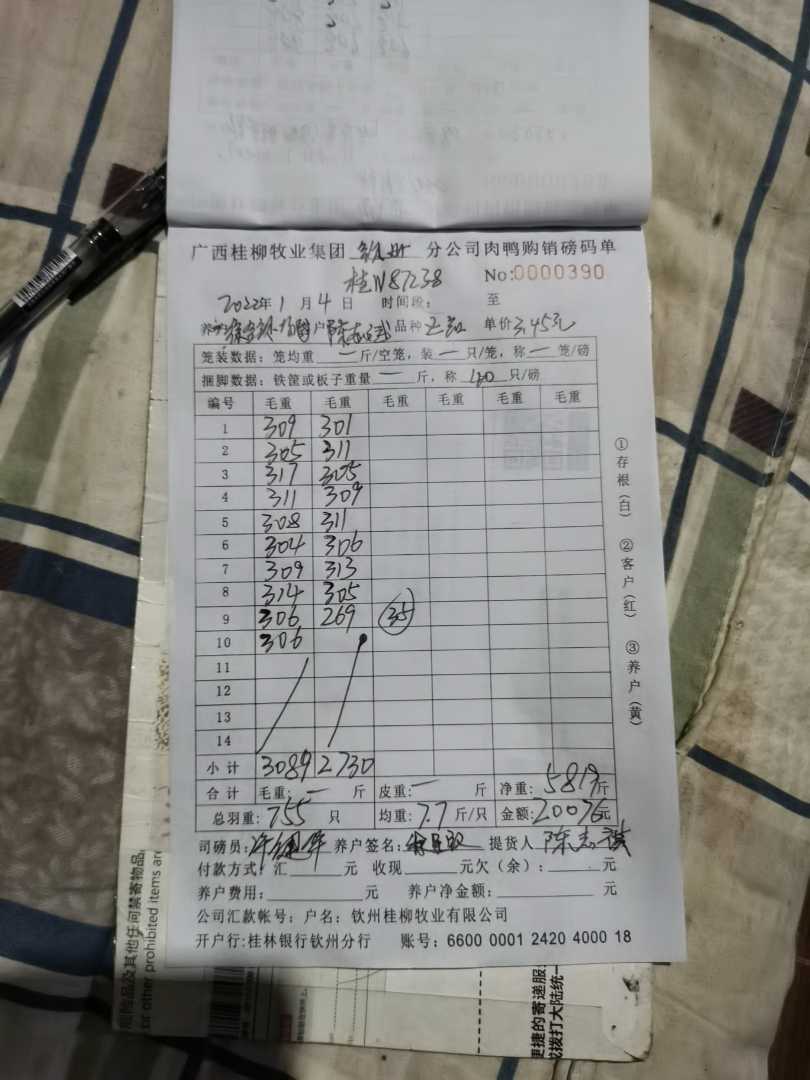 广西桂柳牧业集团 钦州 分公司肉鸭购销磅码单
桂N87238 No:0000390
2022年1月4日 时间段: 至
户 陈志 品种 单价3.45元
笼装数据:笼均重 一 斤/空笼,装 一 只/笼,称 一 笼/磅
捆脚数据:铁筐或板子重量 一 斤,称 40 只/磅
编号 毛重 毛重 毛重 毛重 毛重 毛重
1 309 301
2 305 311
3 317 305
4 311 309
5 308 311
6 304 306
7 309 313
8 314 305
9 306 269 35
10 306
11
12
13
14
小计 3089 2730
合计 毛重:一 斤 皮重:一 斤 净重:5819斤
总羽重:755 只 均重:7.7斤/只 金额:20076元
司磅员: 养户签名: 提货人 陈志
付款方式:汇 元 收现 元欠(余): 元
养户费用: 元 养户净金额: 元
公司汇款帐号:户名:钦州桂柳牧业有限公司
开户行:桂林银行钦州分行 账号:6600 0001 2420 4000 18
①存根(白) ②客户(红) ③养户(黄)
及其他任何禁寄物品
or other prohibited items are
更捷的寄递服
或拨打大陆统一